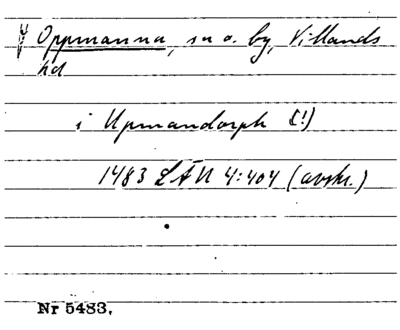 Oppmanna, sn o. by, Villands
hd
i Upmandorph (!)
1483 LÄU 4:404 (avskr.)
Nr 5483.